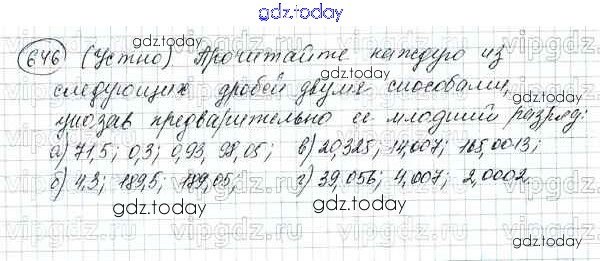 gdz.today
646 (Устно) Прочитайте каждую из
gdz.today gdz.today
следующих дробей двумя способами,
указав предварительно ее младший разряд:
а) 71,5; 0,3; 0,93, 98,05; в) 20,325; 14,007; 165,0013;
б) 4,3; 189,5; 189,05; г) 39,056; 4,007; 2,0002
gdz.today gdz.today gdz.today